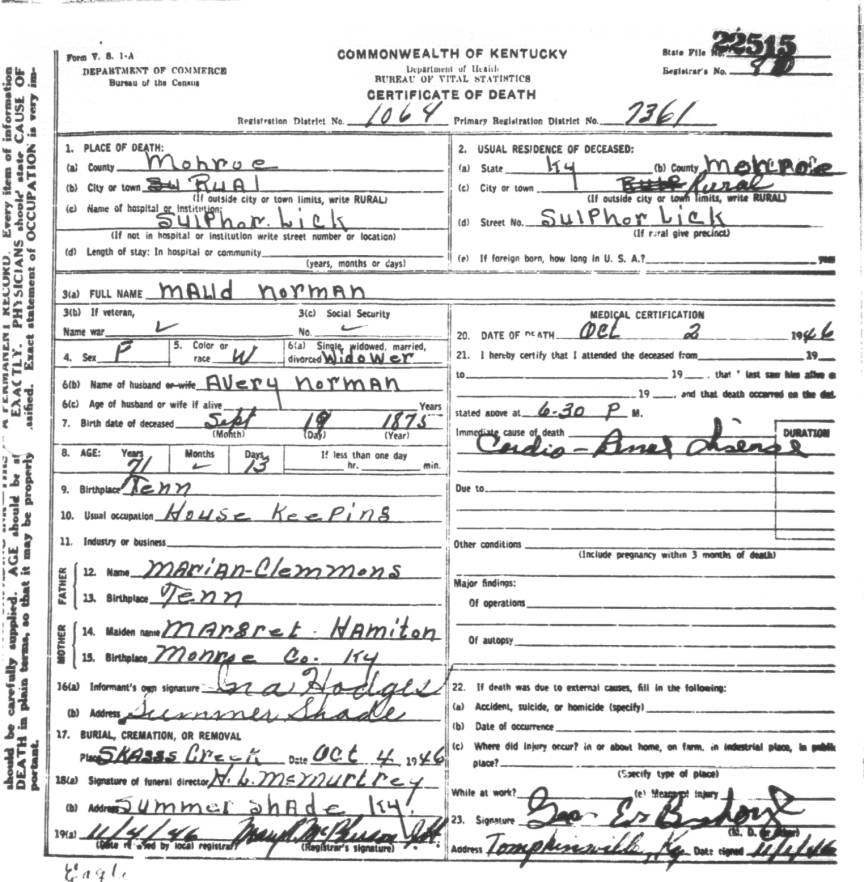 Form V. S. 1-A
DEPARTMENT OF COMMERCE
Bureau of the Census
COMMONWEALTH OF KENTUCKY
Department of Health
BUREAU OF VITAL STATISTICS
CERTIFICATE OF DEATH
State File No. 22515
Registrar's No.
Registration District No. 1064 Primary Registration District No. 7361
should be carefully supplied. AGE should be EXACTLY. PHYSICIANS should state CAUSE OF
DEATH in plain terms, so that it may be properly Exact statement of OCCUPATION is very im-
portant.
1. PLACE OF DEATH:
(a) County Monroe
(b) City or town Rural
(If outside city or town limits, write RURAL)
(c) Name of hospital or institution:
Sulphor Lick
(If not in hospital or institution write street number or location)
(d) Length of stay: In hospital or community
(years, months or days)
2. USUAL RESIDENCE OF DECEASED:
(a) State Ky (b) County Monroe
(c) City or town Rural
(If outside city or town limits, write RURAL)
(d) Street No. Sulphor Lick
(If rural give precinct)
(e) If foreign born, how long in U. S. A.? years
3(a) FULL NAME Maud Norman
3(b) If veteran,
Name war
3(c) Social Security
No.
4. Sex F
5. Color or
race W
6(a) Single, widowed, married,
divorced Widower
6(b) Name of husband or wife Avery Norman
6(c) Age of husband or wife if alive Years
7. Birth date of deceased Sept 19 1875
(Month) (Day) (Year)
8. AGE: Years Months Days If less than one day
71 13 hr. min.
9. Birthplace Tenn
10. Usual occupation House Keeping
11. Industry or business
FATHER
12. Name Marian-Clemmons
13. Birthplace Tenn
MOTHER
14. Maiden name Margret Hamiton
15. Birthplace Monroe Co. Ky
16(a) Informant's own signature Ina Hodges
(b) Address Summer Shade
17. BURIAL, CREMATION, OR REMOVAL
Place Skaggs Creek Date Oct 4 1946
18(a) Signature of funeral director H. L. McMurtrey
(b) Address Summer Shade Ky.
19(a) 11/4/46
(Date received by local registrar) (Registrar's signature)
MEDICAL CERTIFICATION
20. DATE OF DEATH Oct 2 1946
21. I hereby certify that I attended the deceased from 19
to 19 , that I last saw him alive o
19 , and that death occurred on the dat
stated above at 6-30 P M.
Immediate cause of death DURATION
Cardio-Renal disease
Due to
Other conditions
(Include pregnancy within 3 months of death)
Major findings:
Of operations
Of autopsy
22. If death was due to external causes, fill in the following:
(a) Accident, suicide, or homicide (specify)
(b) Date of occurrence
(c) Where did injury occur? in or about home, on farm, in industrial place, in public
place?
(Specify type of place)
While at work? (e) Means of injury
23. Signature Geo E
(M. D. or other)
Address Tompkinsville, Ky Date signed